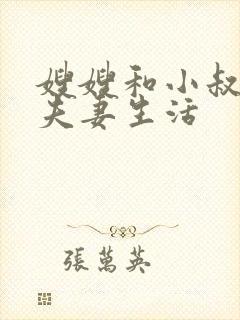 嫂嫂和小叔
夫妻生活
張萬英